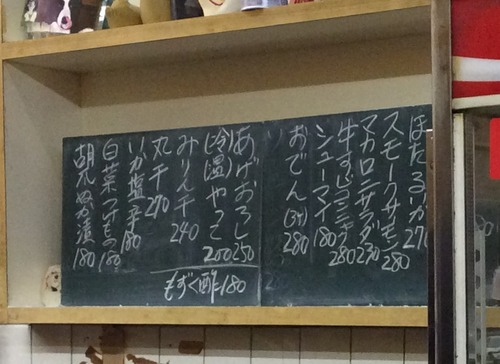 ほたるいか 270
スモークサーモン 280
マカロニサラダ 230
牛すじニコミ 280
シューマイ 180
おでん(3ヶ) 280
あげおろし 250
(冷)(温)やっこ 200
みりん干 240
丸干 270
いか塩辛 180
白菜つけもの 180
胡瓜ぬか漬 180
もずく酢 180